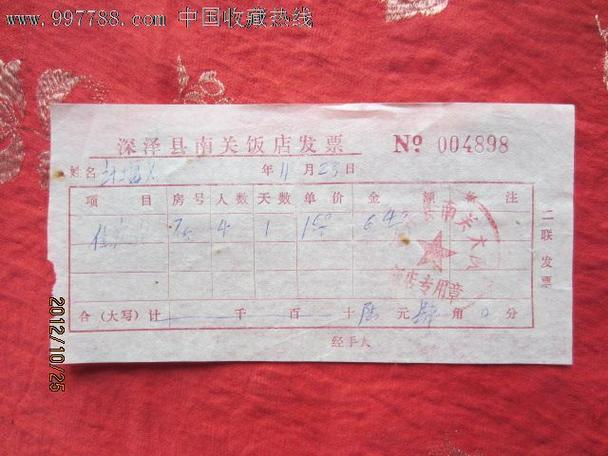 www.997788.com 中国收藏热线
深泽县南关饭店发票 № 004898
姓名 年 11 月 23 日
项目 房号 人数 天数 单价 金额 备注
住 4 1 6 4
南关大
专用章
合(大写)计 千 百 十 陆 元 肆 角 0 分
经手人
二联发票
2012/10/25